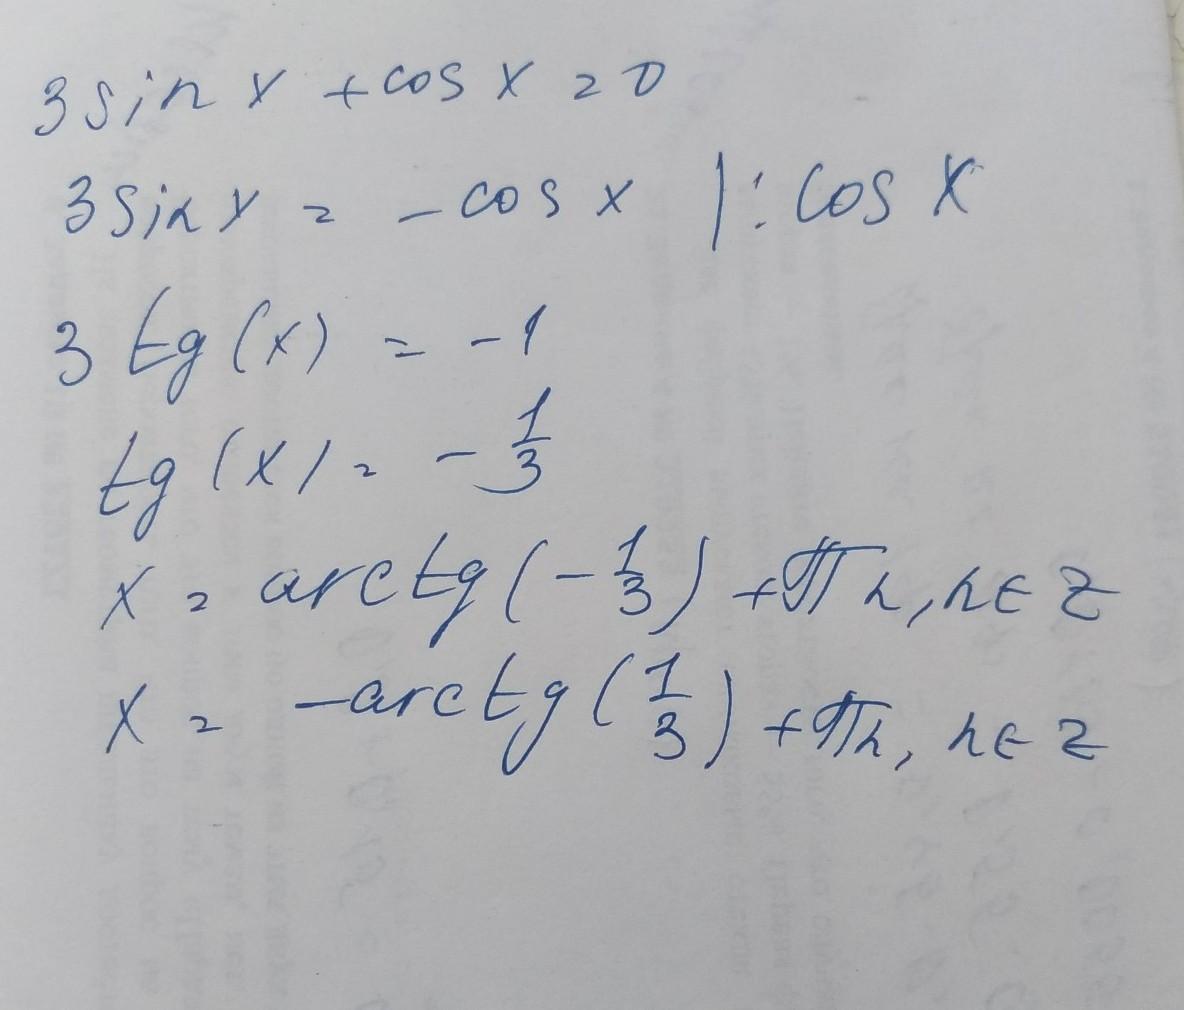 3 sin x + cos x = 0
3 sin x = - cos x |: cos x
3 tg (x) = -1
tg (x) = - 1/3
x = arctg (- 1/3) + πn, n ∈ z
x = -arctg (1/3) + πn, n ∈ z